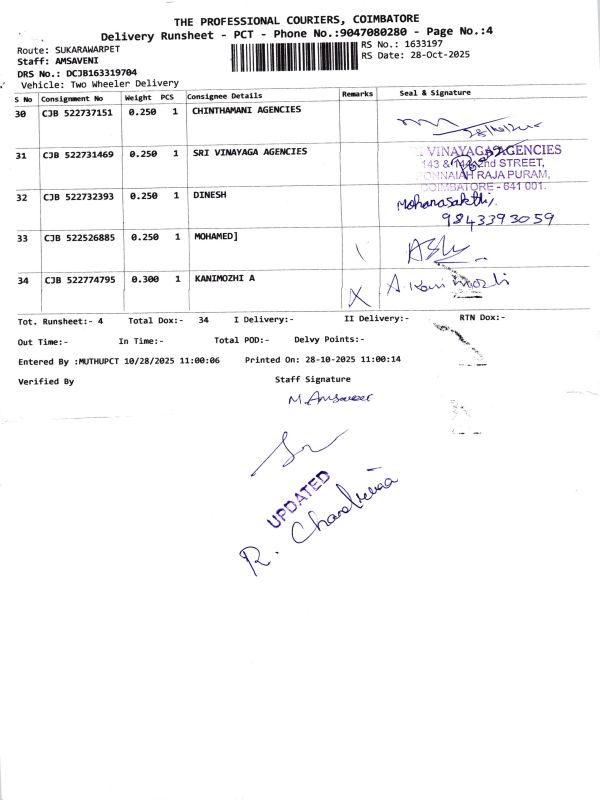 THE PROFESSIONAL COURIERS, COIMBATORE
Delivery Runsheet - PCT - Phone No.:9047080280 - Page No.:4
Route: SUKARAWARPET
RS No.: 1633197
Staff: AMSAVENI
RS Date: 28-Oct-2025
DRS No.: DCJB163319704
Vehicle: Two Wheeler Delivery
S No Consignment No Weight PCS Consignee Details Remarks Seal & Signature
30 CJB 522737151 0.250 1 CHINTHAMANI AGENCIES
31 CJB 522731469 0.250 1 SRI VINAYAGA AGENCIES
VINAYAGA AGENCIES
2nd STREET,
PONNAIAH RAJA PURAM,
COIMBATORE - 641 001.
32 CJB 522732393 0.250 1 DINESH
9843393059
33 CJB 522526885 0.250 1 MOHAMED]
34 CJB 522774795 0.300 1 KANIMOZHI A X A. Kanimozhi
Tot. Runsheet:- 4 Total Dox:- 34 I Delivery:- II Delivery:- RTN Dox:-
Out Time:- In Time:- Total POD:- Delvy Points:-
Entered By :MUTHUPCT 10/28/2025 11:00:06 Printed On: 28-10-2025 11:00:14
Verified By Staff Signature
M. Amsaveni
UPDATED